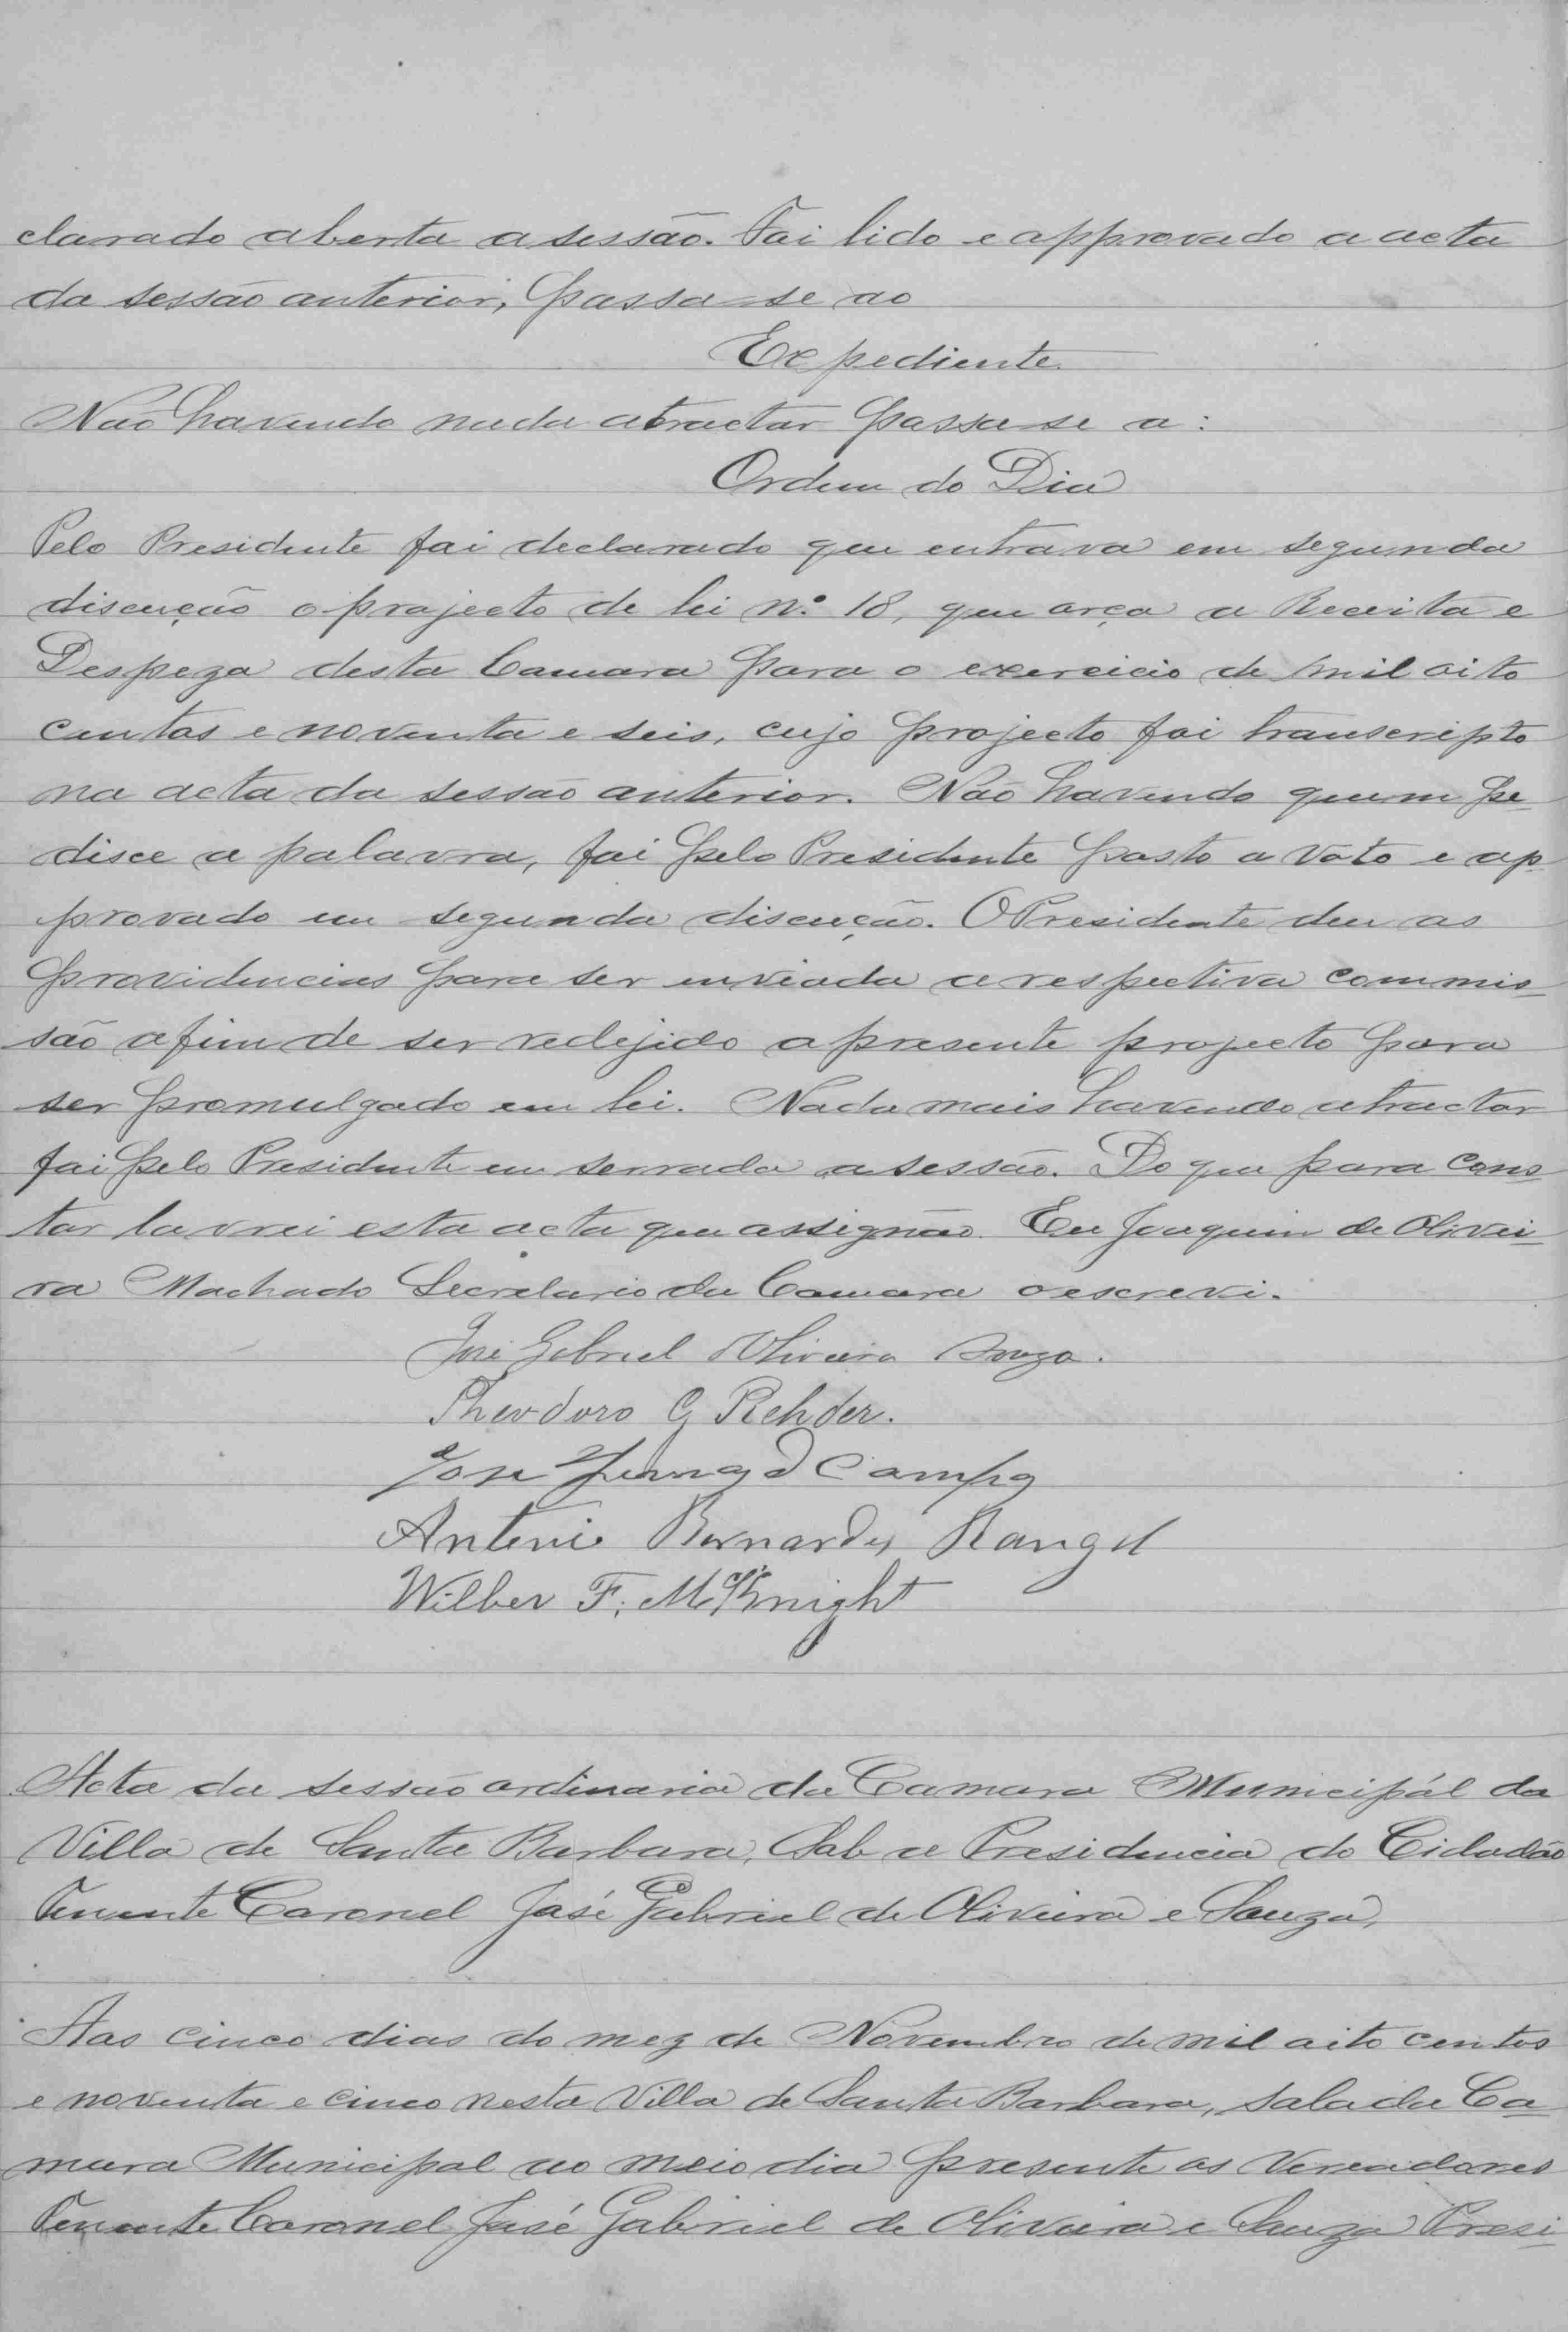 clarado aberta a sessão. Foi lido e approvado a acta
da sessão anterior, passa-se ao
Expediente
Não havendo nada atractar passa-se a:
Ordem do Dia
Pelo Presidente foi declarado que entrava em segunda
discução o projecto de lei n.º 18, que orça a Receita e
Despeza desta Camara para o exercicio de mil oito
centos e noventa e seis, cujo projecto foi transcripto
na acta da sessão anterior. Não havendo quem pe-
disce a palavra, foi pelo Presidente posto a voto e ap-
provado em segunda discução. O Presidente deu as
providencias para ser enviada a respectiva commis-
são afim de ser redejido a presente projecto para
ser promulgado em lei. Nada mais havendo atractar
foi pelo Presidente em serrada a sessão. Do que para cons-
tar lavrei esta acta que assignão. Eu Joaquim de Olivei-
ra Machado Secretario da Camara o escrevi.
José Gabriel Oliveira Souza.
Theodoro G Rehder.
Jose de Campos
Antonio Bernardes Rangel
Wilber F. McKnight
Acta da sessão ordinaria da Camara Municipál da
Villa de Santa Barbara, Sob a Presidencia do Cidadão
Tenente Coronel José Gabriel de Oliveira e Souza,
Aos cinco dias do mez de Novembro de mil oito centos
e noventa e cinco nesta Villa de Santa Barbara, sala da Ca-
mara Municipal ao meio dia presente os Vereadores
Tenente Coronel José Gabriel de Oliveira e Souza Presi-